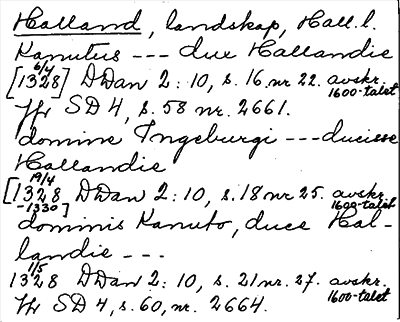 Halland, landskap, Hall. l.
Kanutus --- dux Hallandie
6/4
[1328] DDan 2:10, s. 16 nr 22. avskr. 1600-talet
Jfr SD 4, s. 58 nr. 2661.
domine Ingeburgi --- ducisse
Hallandie
19/4
[1328 DDan 2:10, s. 18 nr 25. avskr. 1600-talet
-1330]
dominis Kanuto, duce Hal-
landie ---
1/5
1328 DDan 2:10, s. 21 nr. 27. avskr. 1600-talet
Jfr SD 4, s. 60, nr. 2664.